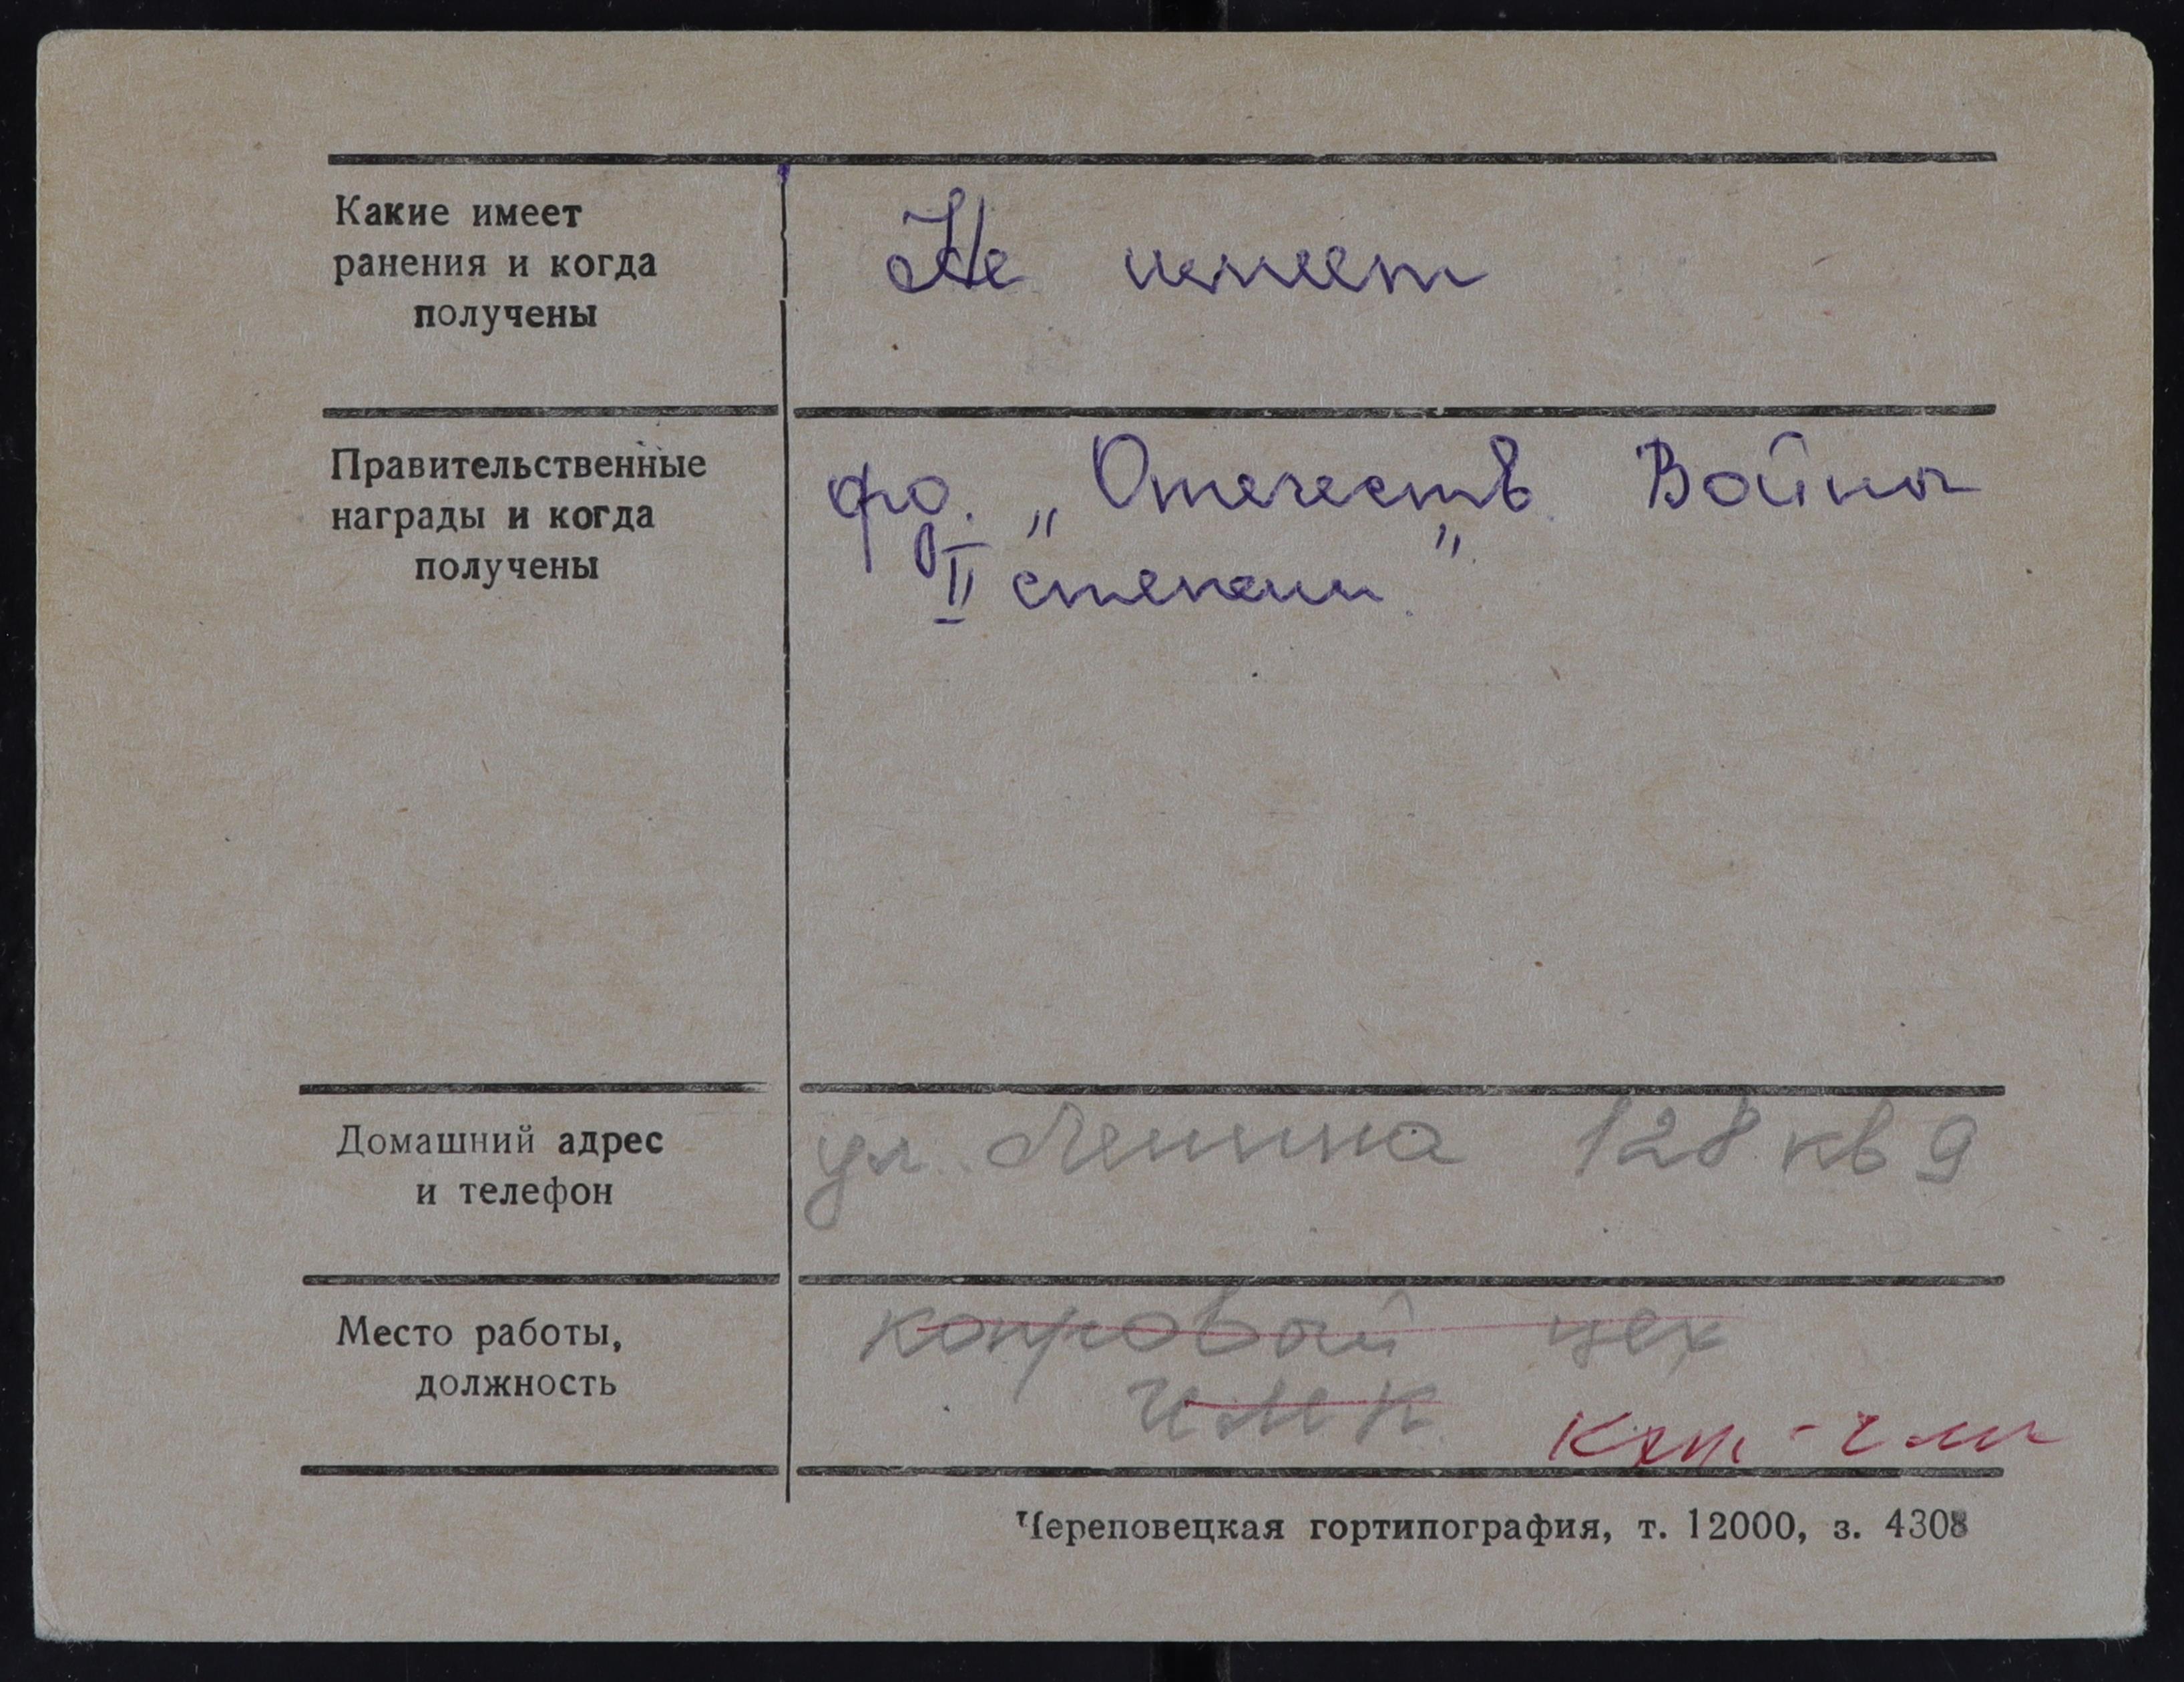 Какие имеет
ранения и когда
получены
Не имеет
Правительственные
награды и когда
получены
„Отечеств. Войны
II степени"
Домашний адрес
и телефон
ул. Ленина 128 кв 9
Место работы,
должность
копровый цех
ЧМК
Череповецкая гортипография, т. 12000, з. 4308